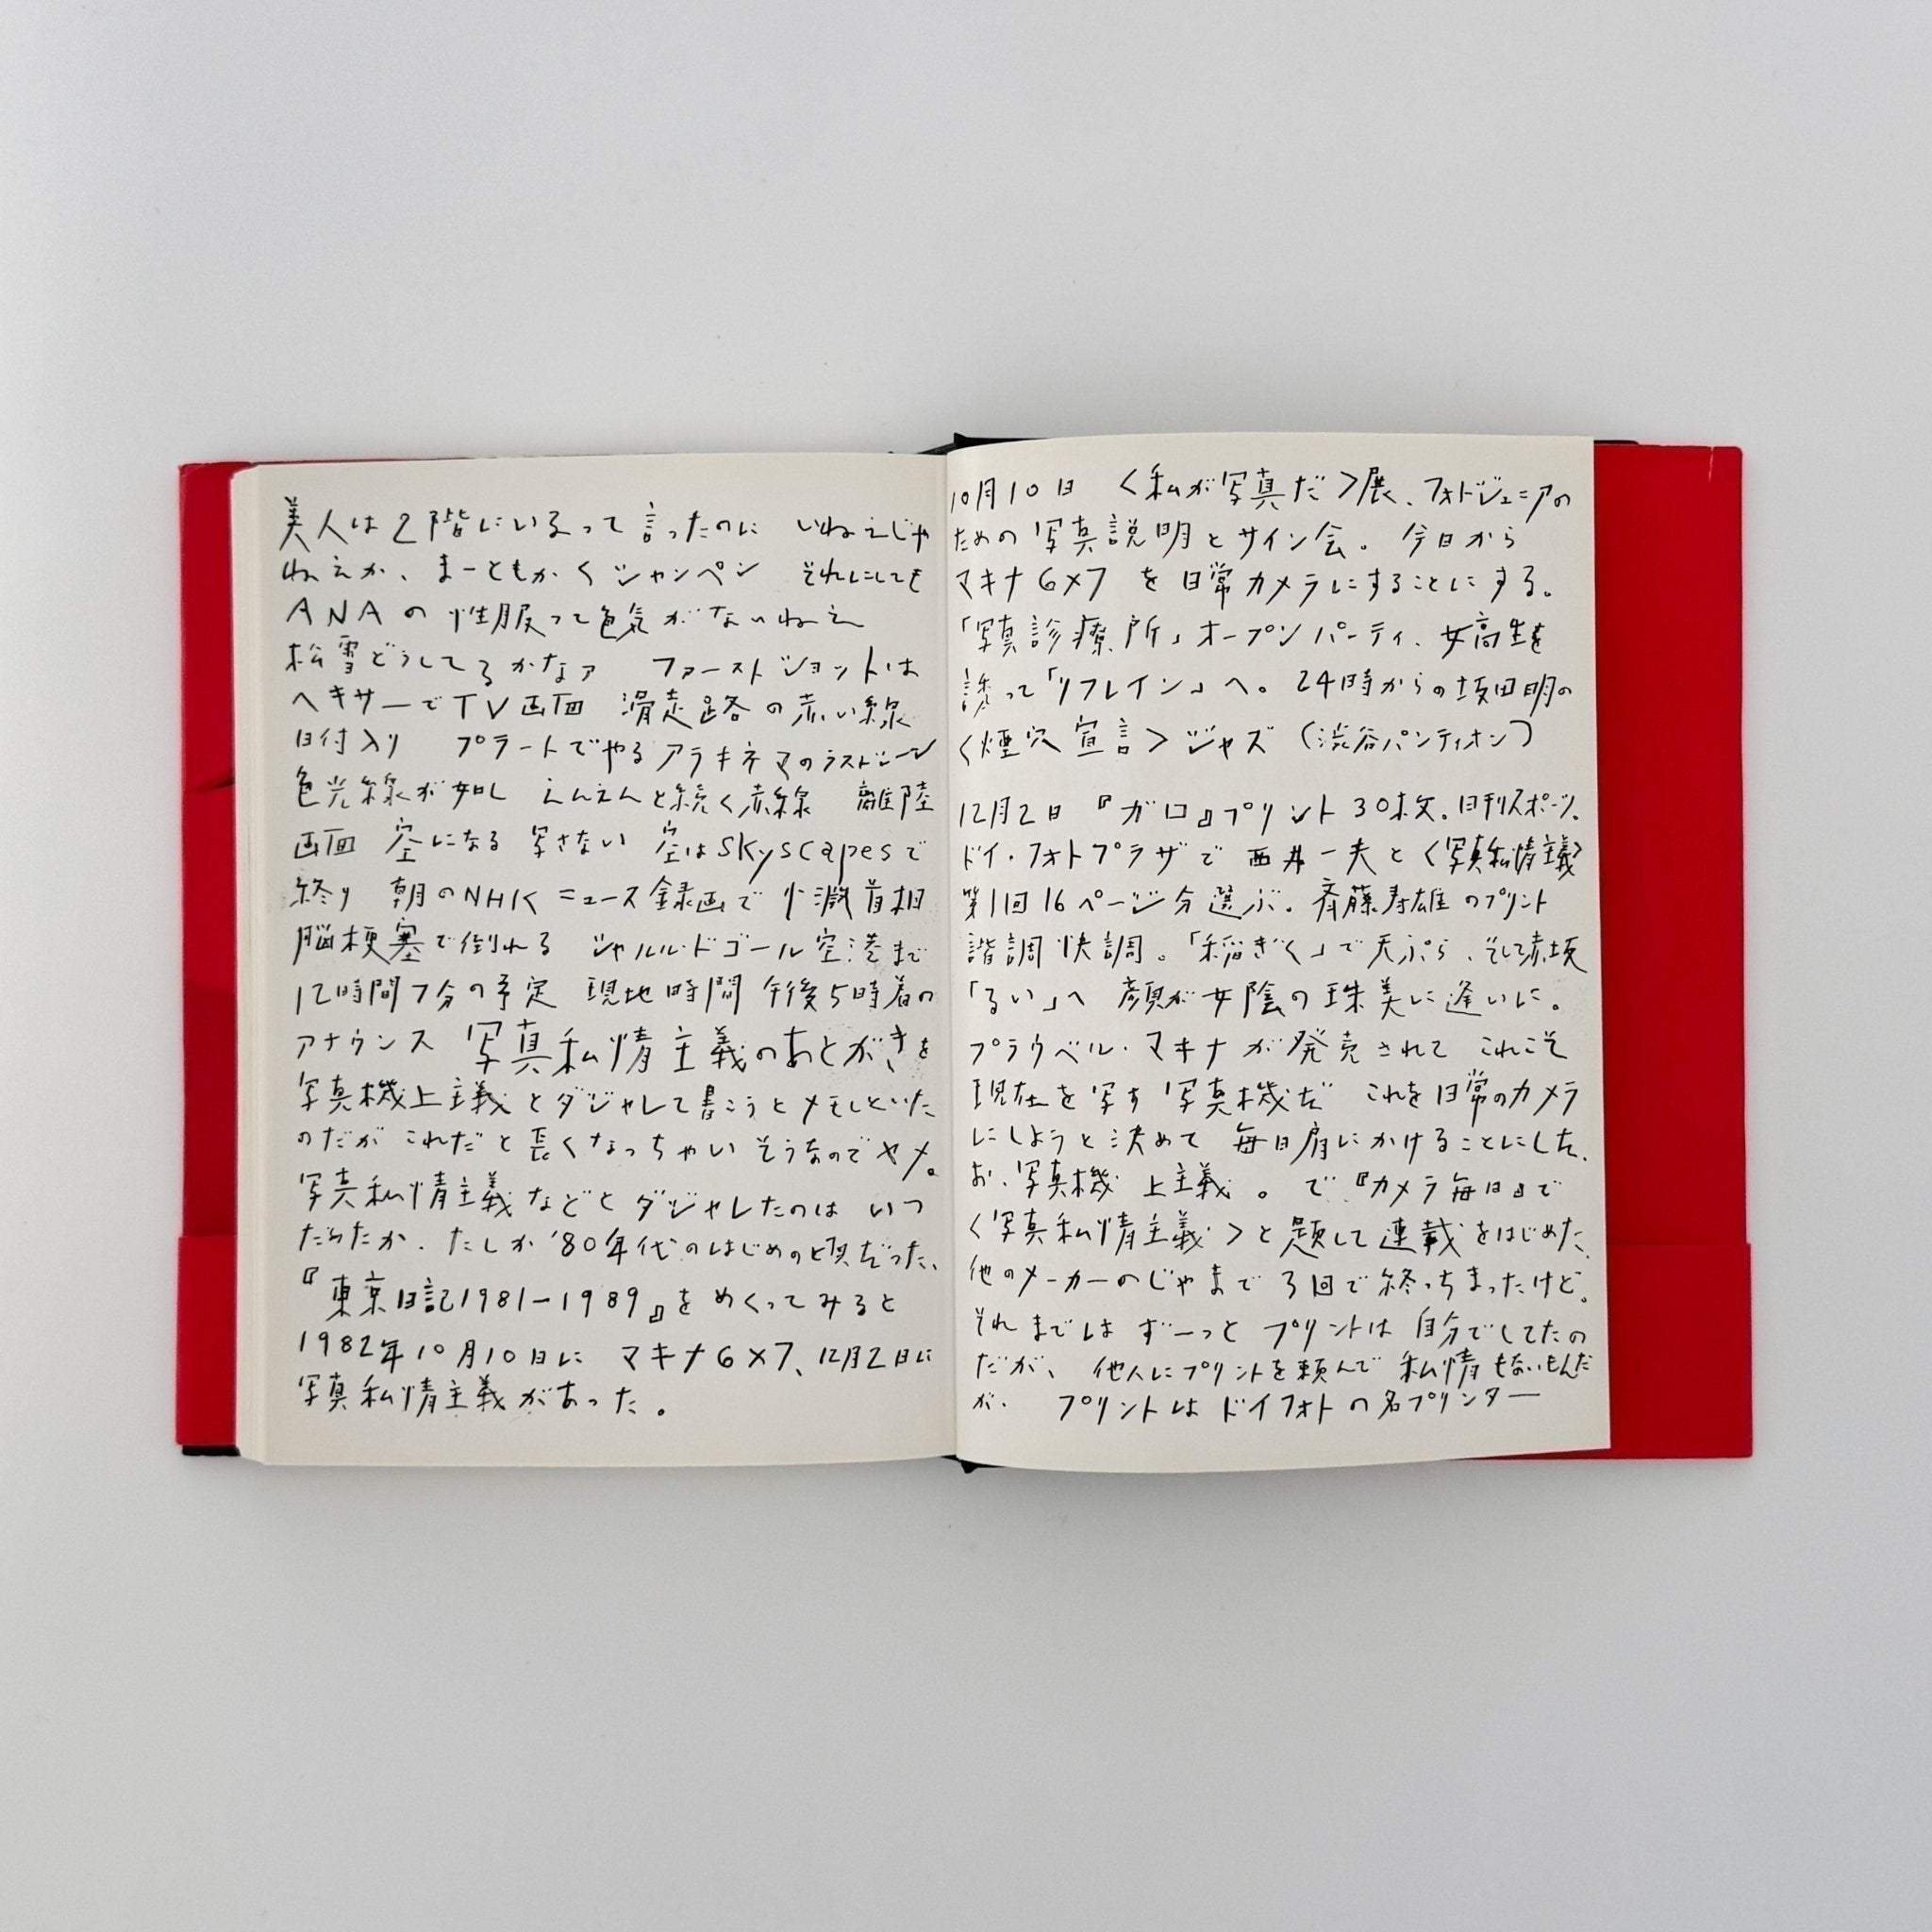 美人は2階にいるって言ったのに いねえじゃ
ねえか、まーともかくシャンペン それにしても
ANAの性服って色気がないねえ
松雪どうしてるかなァ ファーストショットは
ヘキサーでTV画面 滑走路の赤い線
日付入り プラートでやるアラキネマのラストシーン
色光線が如し えんえんと続く赤線 離陸
画面 空になる 写さない 空はskyscapesで
終り 朝のNHKニュース録画で小渕首相
脳梗塞で倒れる シャルル・ドゴール空港まで
12時間7分の予定 現地時間 午後5時着の
アナウンス 写真私情主義のあとがきを
写真機上主義とダジャレて書こうとメモしといた
のだが これだと長くなっちゃいそうなのでヤメ。
写真私情主義などとダジャレたのは いつ
だったか、たしか'80年代のはじめの頃だった、
『東京日記1981-1989』をめくってみると
1982年10月10日に マキナ6×7、12月2日に
写真私情主義があった。
10月10日 〈私が写真だ〉展、フォトジェニアの
ための写真説明とサイン会。今日から
マキナ6×7 を日常カメラにすることにする。
「写真診療所」オープンパーティ、女高生を
誘って「リフレイン」へ。24時からの坂田明の
〈煙穴宣言〉ジャズ（渋谷パンティオン）
12月2日『ガロ』プリント30枚。日刊スポーツ。
ドイ・フォトプラザで西井一夫と〈写真私情主義〉
第1回16ページ分選ぶ。斉藤寿雄のプリント
諧調快調。「稲ぎく」で天ぷら、そして赤坂
「るい」へ 顔が女陰の珠美に逢いに。
プラウベル・マキナが発売されて これこそ
現在を写す写真機だ これを日常のカメラ
にしようと決めて 毎日肩にかけることにした、
お、写真機上主義。で『カメラ毎日』で
〈写真私情主義〉と題して連載をはじめた、
他のメーカーのじゃまで3回で終っちまったけど。
それまではずーっとプリントは自分でしてたの
だが、他人にプリントを頼んで私情もないもんだ
が、 プリントはドイフォトの名プリンター